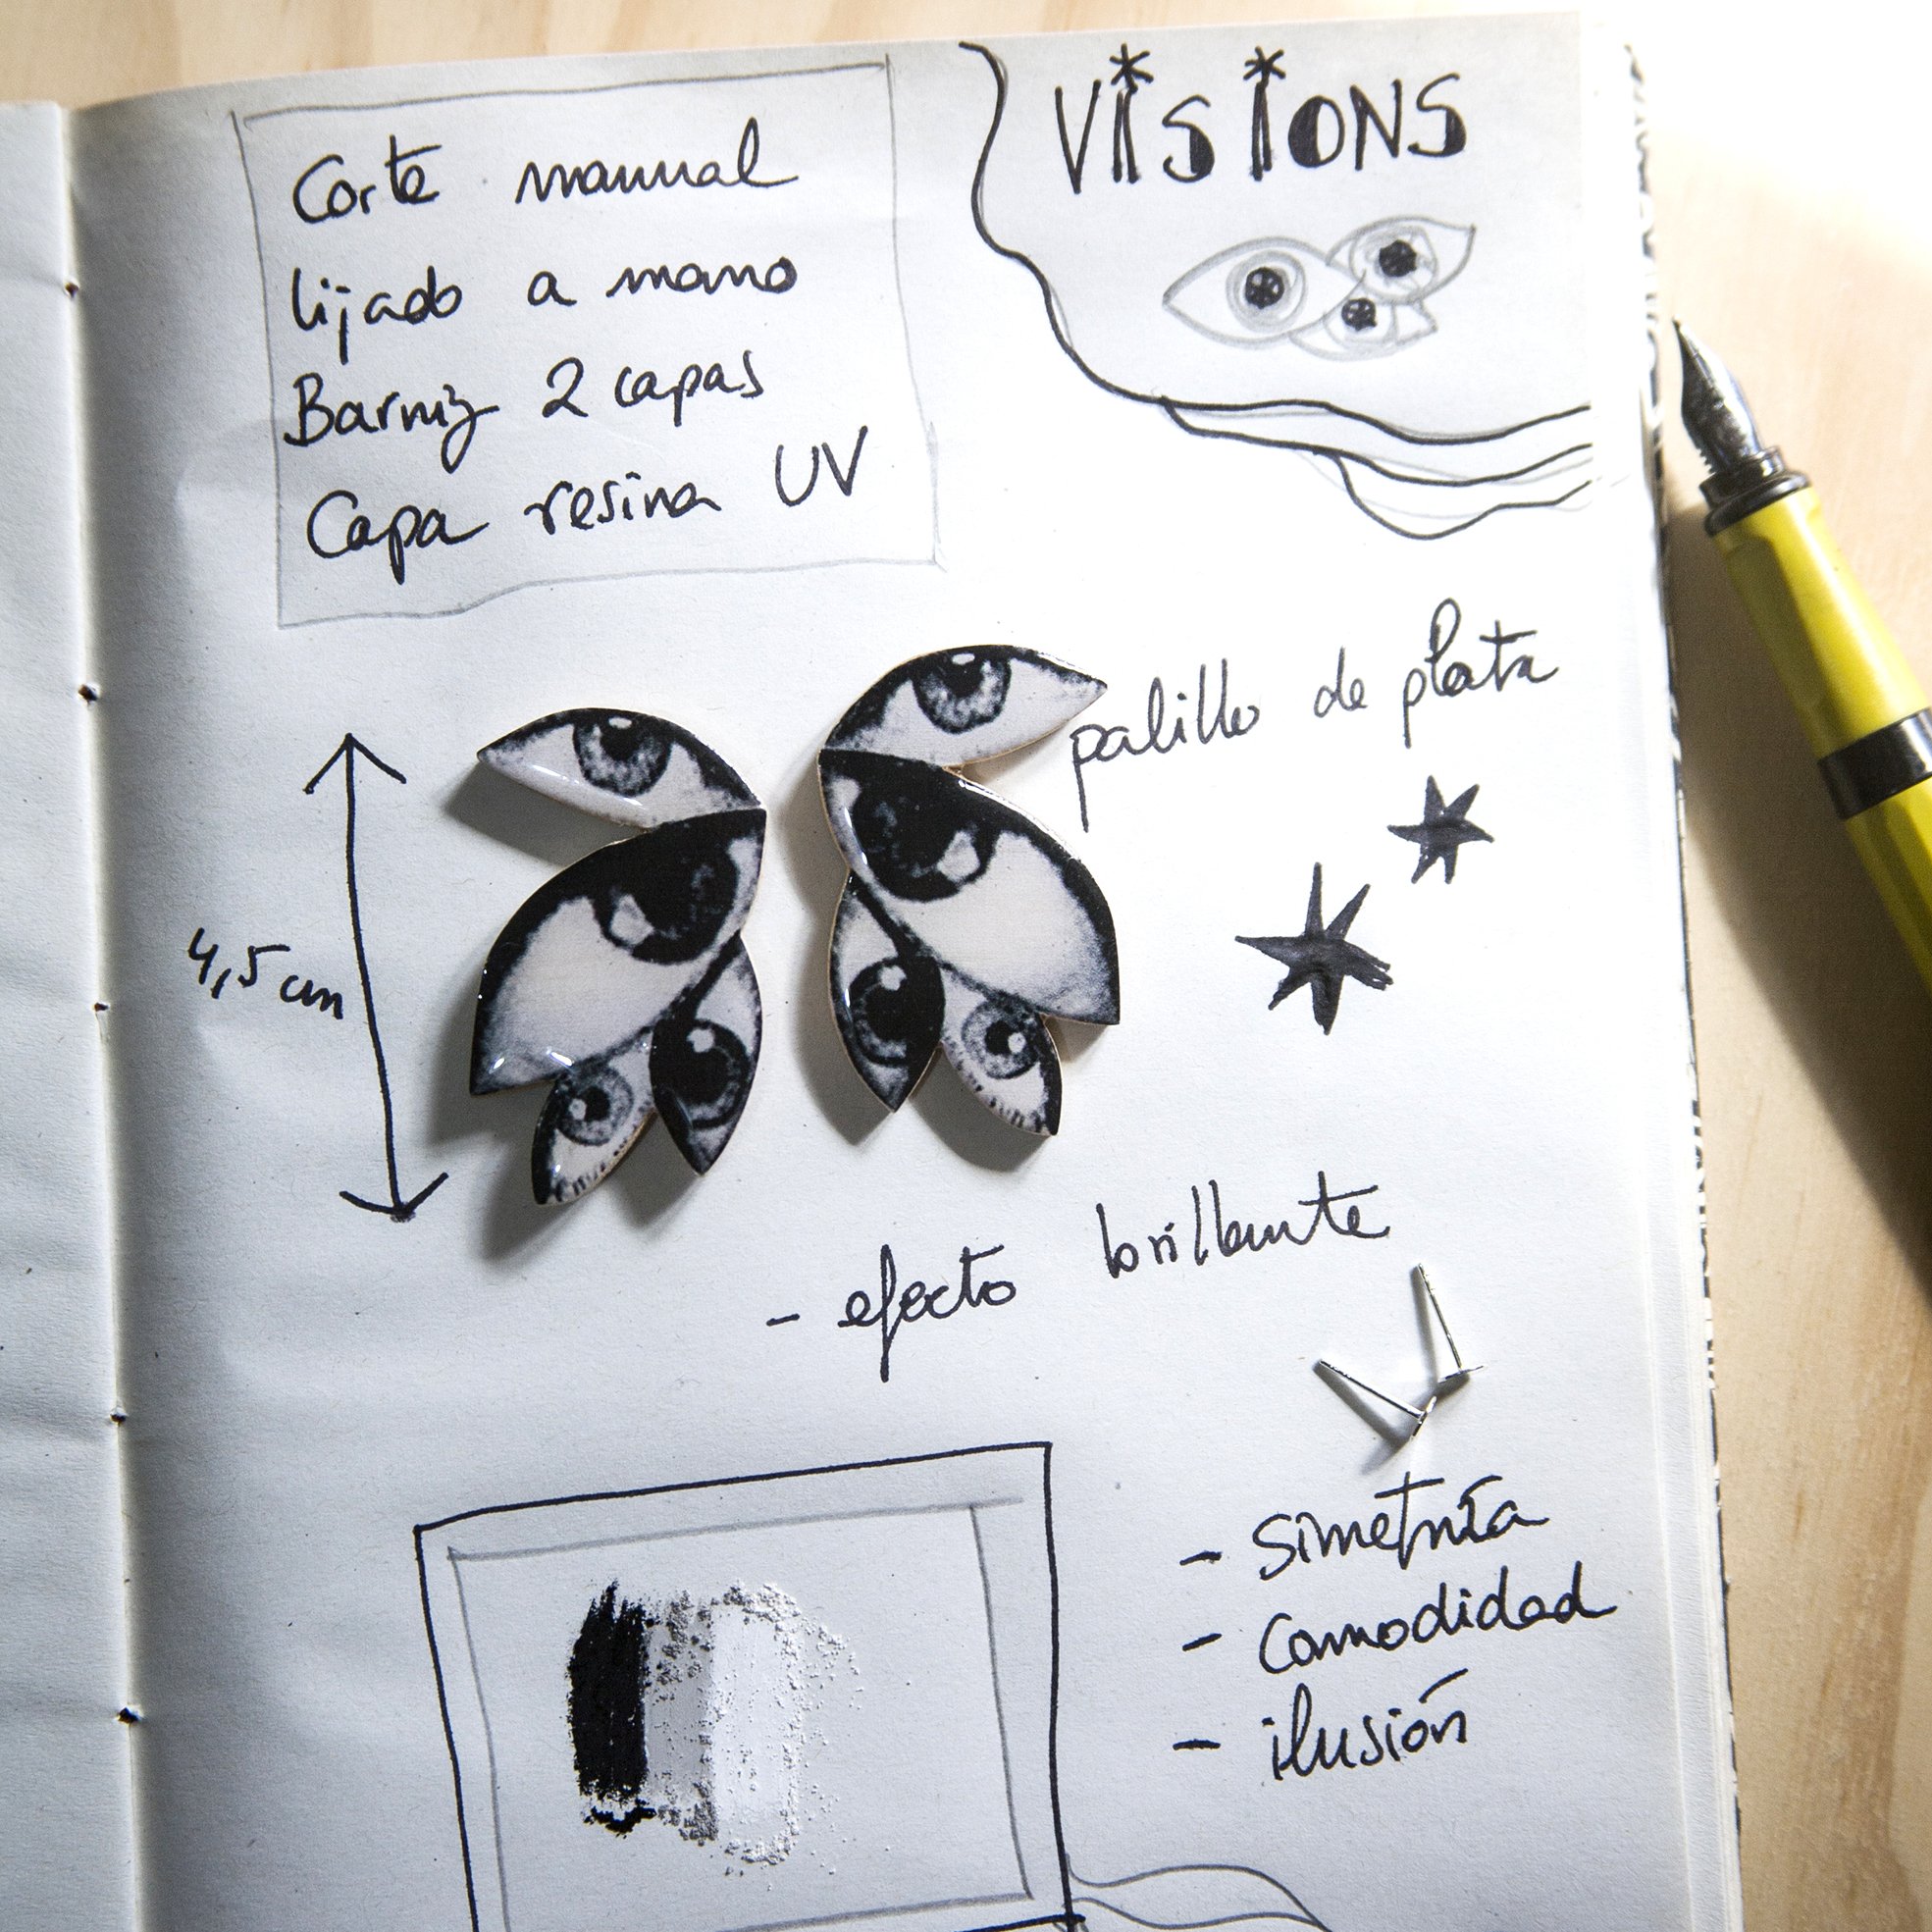 Corte manual
lijado a mano
Barniz 2 capas
Capa resina UV
VISIONS
palillo de plata
4,5 cm
- efecto brillante
- Simetría
- Comodidad
- ilusión